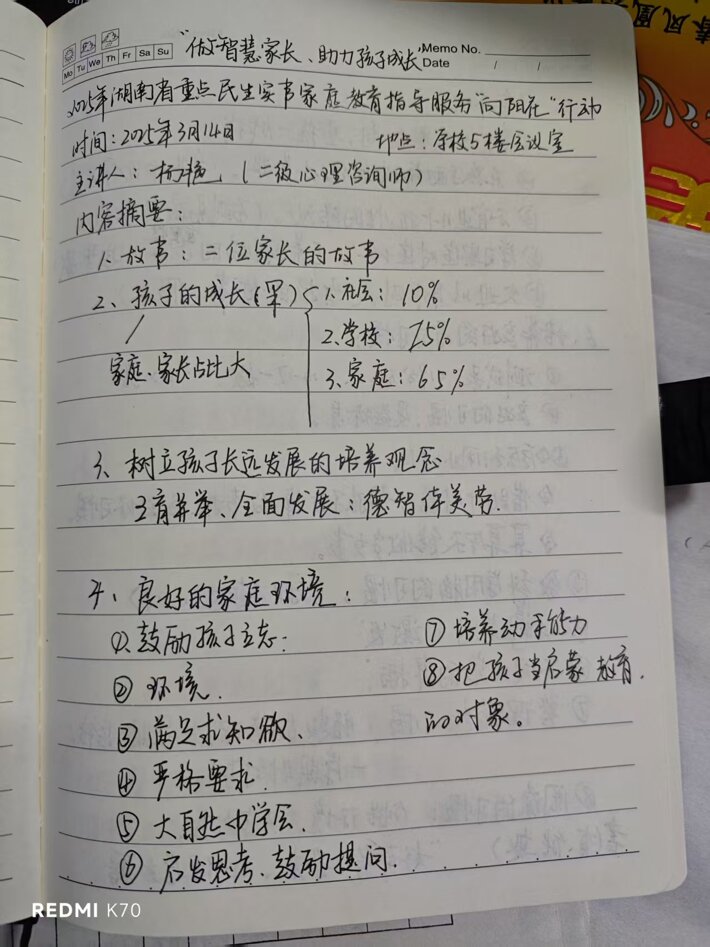 Mo Tu We Th Fr Sa Su
Memo No.
Date / /
"做智慧家长、助力孩子成长"
2025年湖南省重点民生实事家庭教育指导服务"向阳花"行动
时间:2025年3月14日 地点:学校5楼会议室
主讲人:杨艳(二级心理咨询师)
内容摘要:
1、故事:二位家长的故事
2、孩子的成长(果) 1、社会:10%
2、学校:25%
家庭、家长占比大
3、家庭:65%
3、树立孩子长远发展的培养观念
五育并举、全面发展:德智体美劳.
4、良好的家庭环境:
①鼓励孩子立志. ⑦培养动手能力
②环境. ⑧把孩子当启蒙教育.
③满足求知欲、 的对象。
④严格要求.
⑤大自然中学会.
⑥启发思考、鼓励提问.
REDMI K70